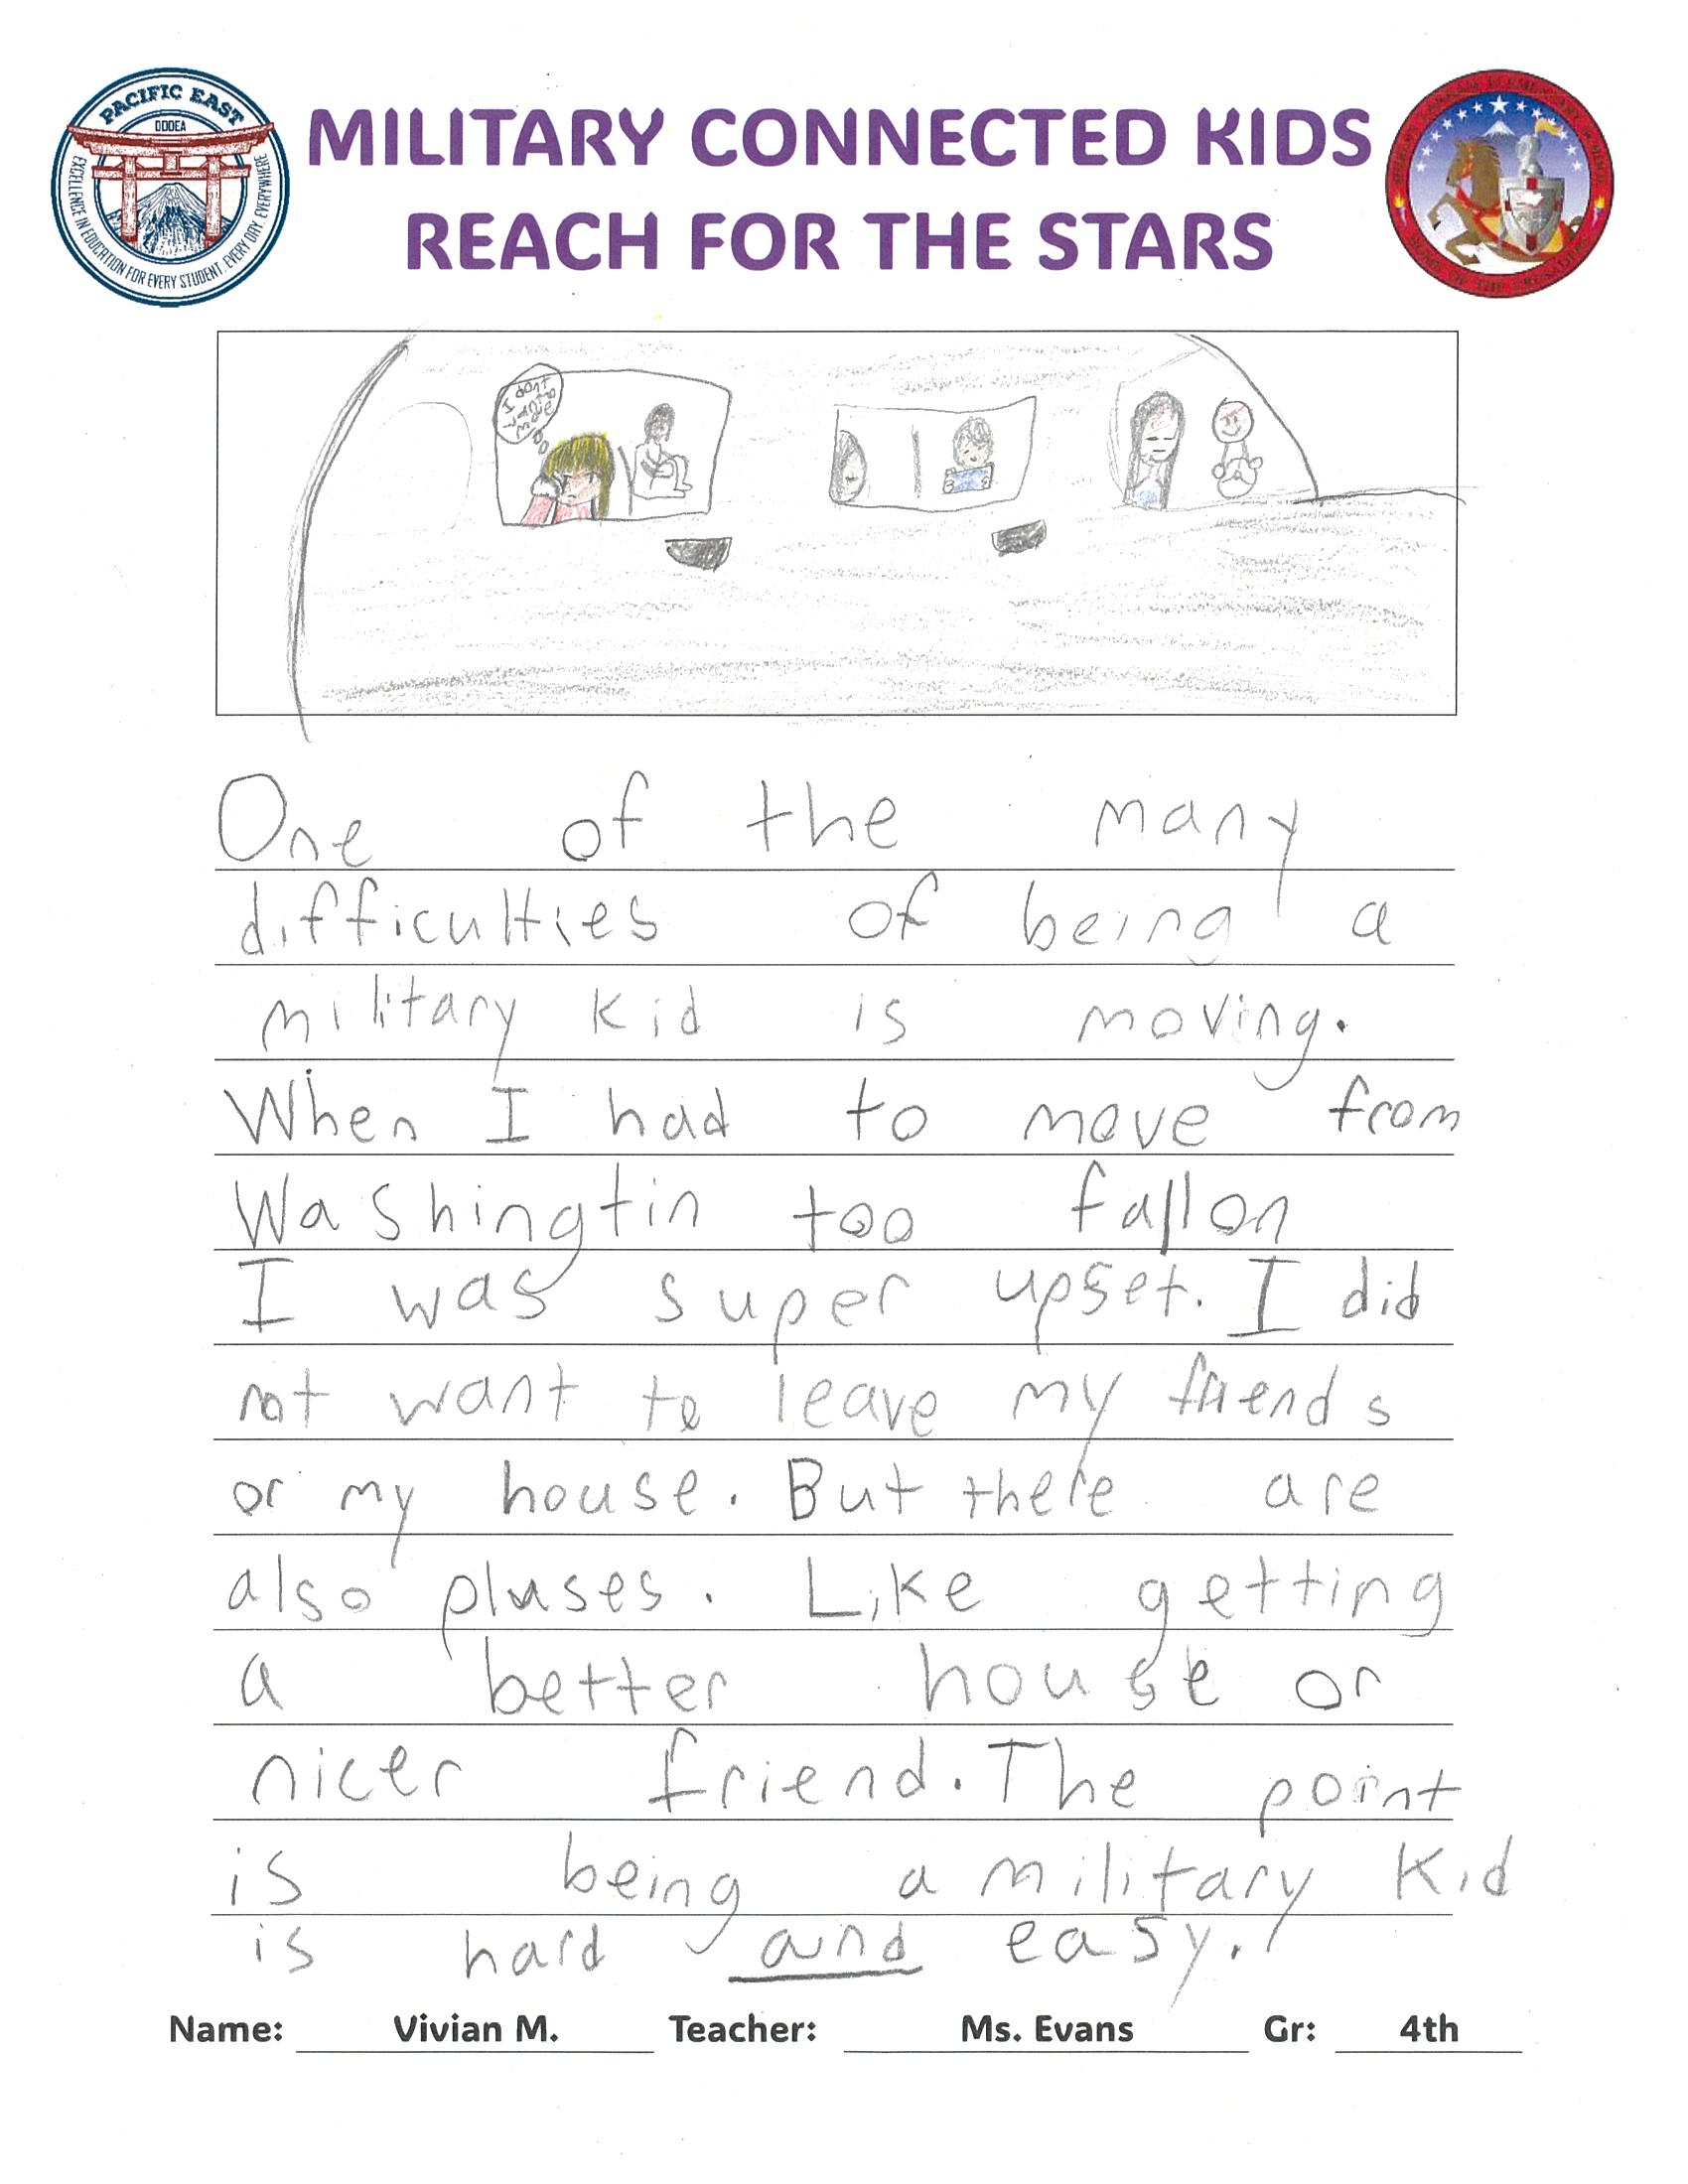 PACIFIC EAST
DODEA
EXCELLENCE IN EDUCATION FOR EVERY STUDENT, EVERY DAY, EVERYWHERE
MILITARY CONNECTED KIDS
REACH FOR THE STARS
I dont
want to
move
One of the many
difficulties of being a
military kid is moving.
When I had to move from
Washingtin too fallon
I was super upset. I did
not want to leave my friends
or my house. But there are
also pluses. Like getting
a better house or
nicer friend. The point
is being a military kid
is hard and easy.
Name: Vivian M. Teacher: Ms. Evans Gr: 4th